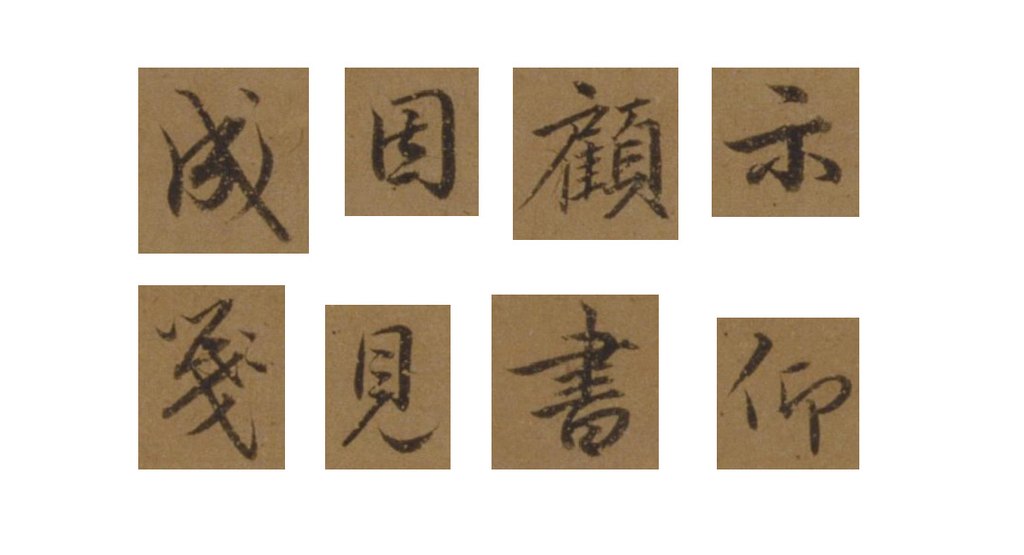 成因顧示
箋見書仰